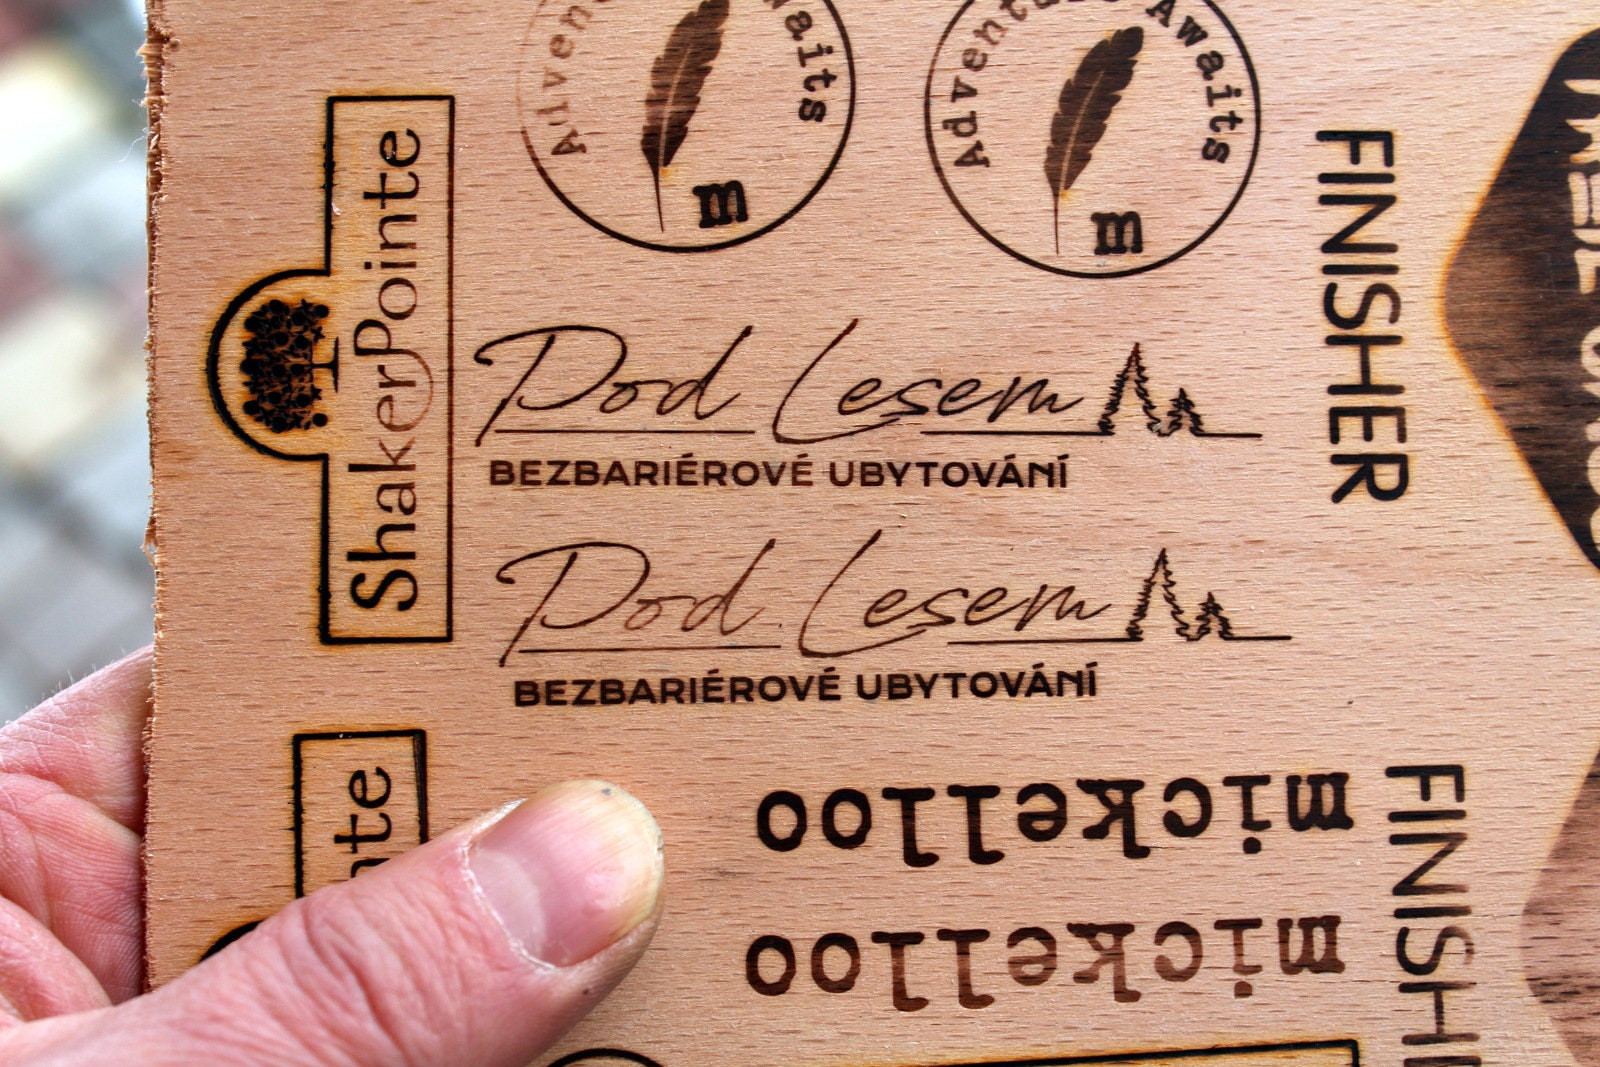 Adventure Awaits
m
Adventure Awaits
m
ShakerPointe
FINISHER
Pod Lesem
BEZBARIÉROVÉ UBYTOVÁNÍ
Pod Lesem
BEZBARIÉROVÉ UBYTOVÁNÍ
nte
mickelloo
mickelloo
FINISH